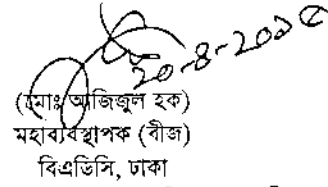 20-8-2015
(মোঃ আজিজুল হক)
মহাব্যবস্থাপক (বীজ)
বিএডিসি, ঢাকা